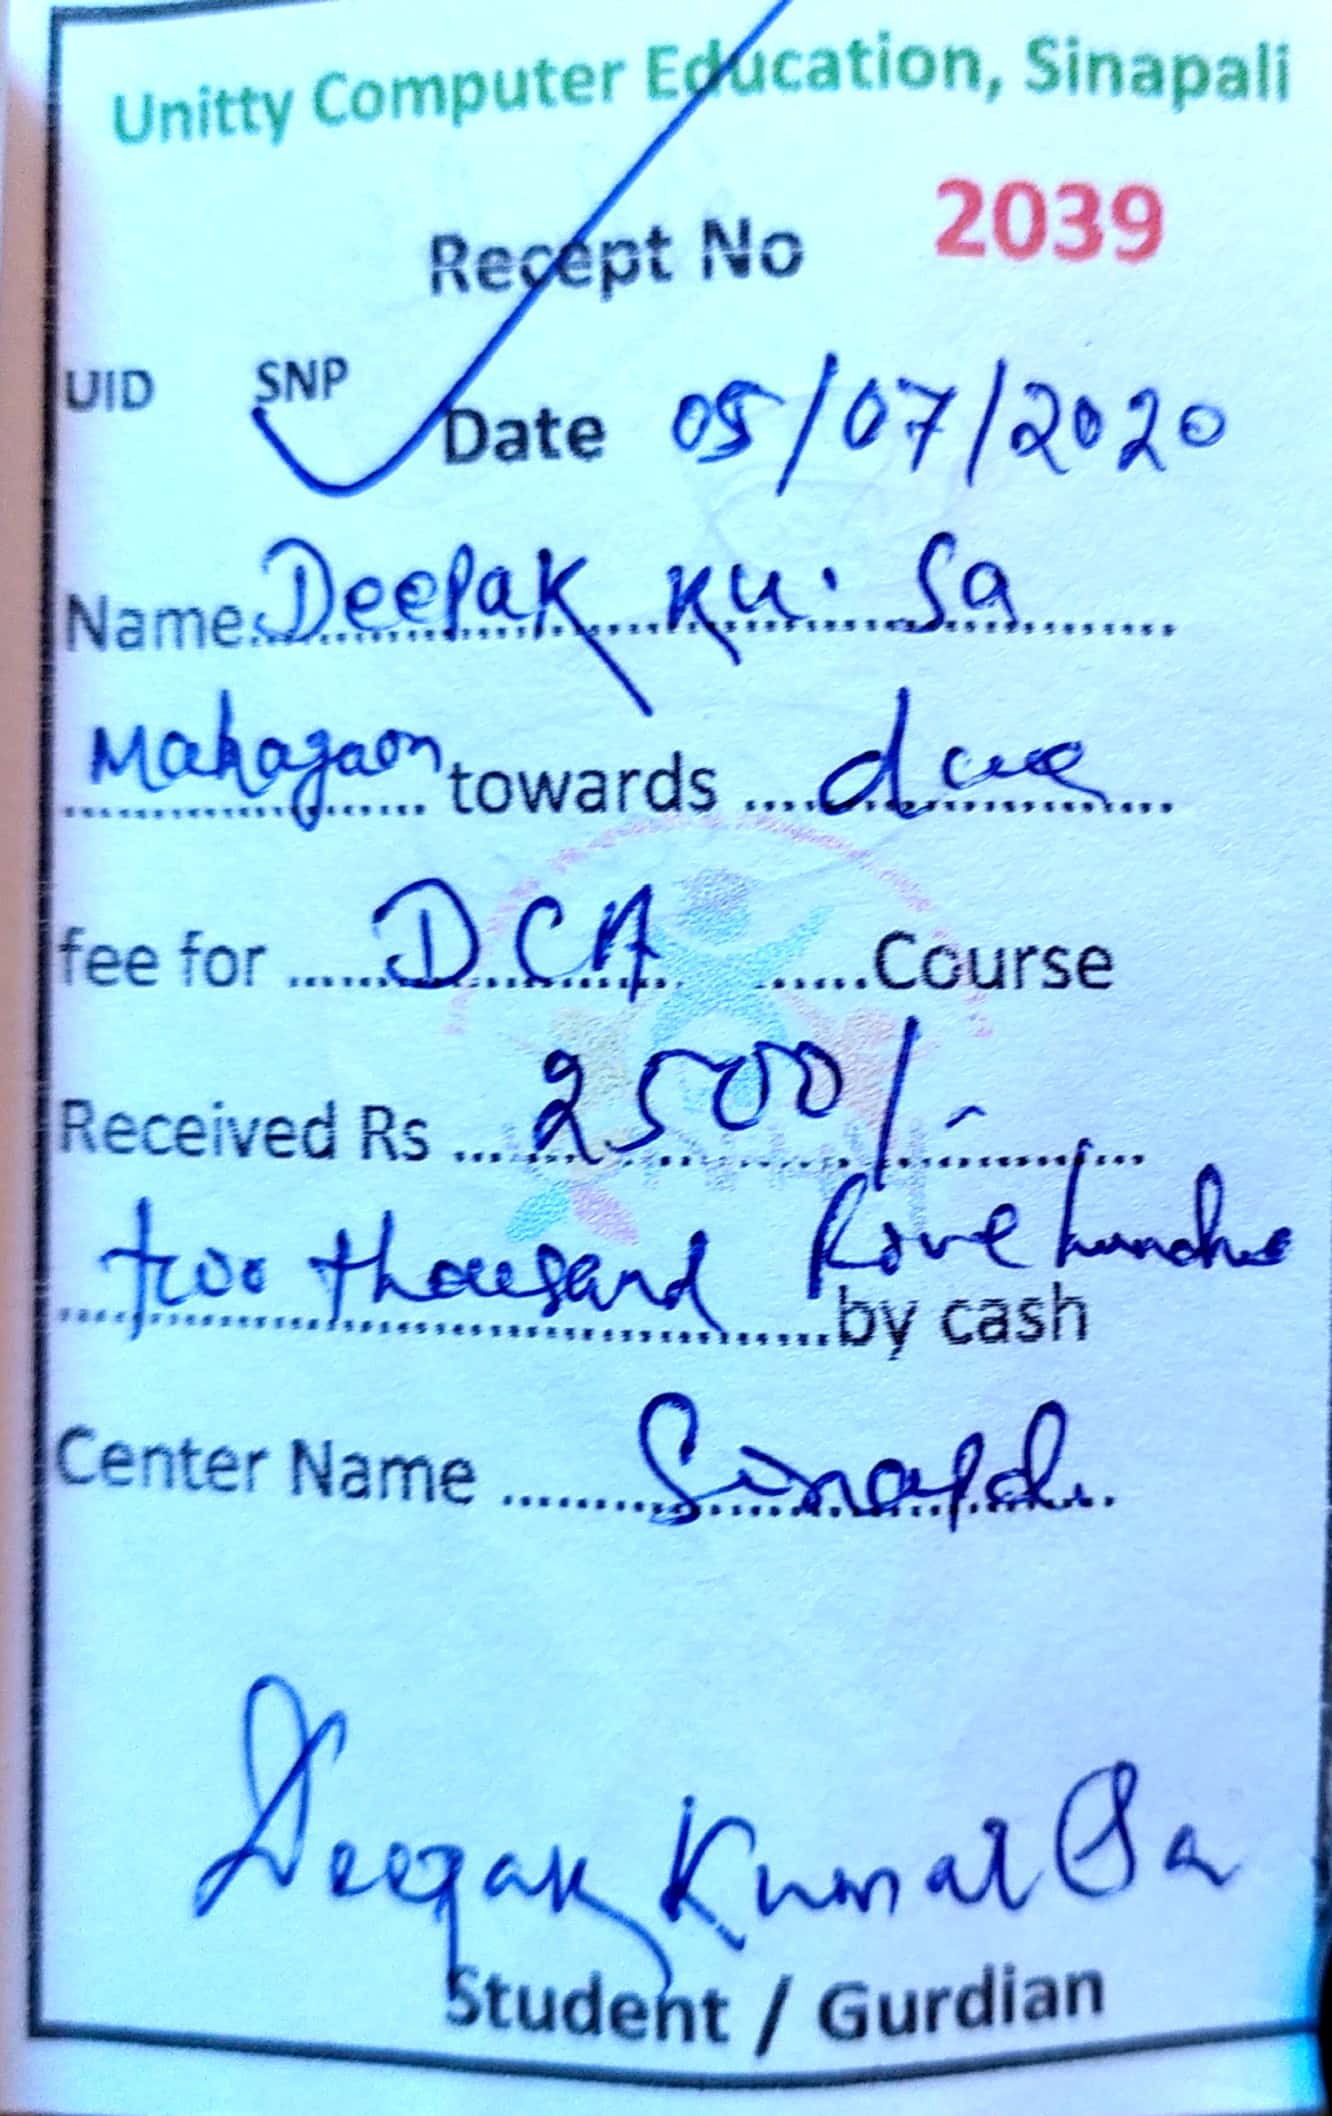 Unitty Computer Education, Sinapali
Recept No 2039
UID SNP
Date 05/07/2020
Name Deepak Ku. Sa
Mahagaon towards due
fee for DCA Course
Received Rs 2500/-
two thousand five hundred
by cash
Center Name Sinapali
Deepak Kumar Sa
Student / Gurdian